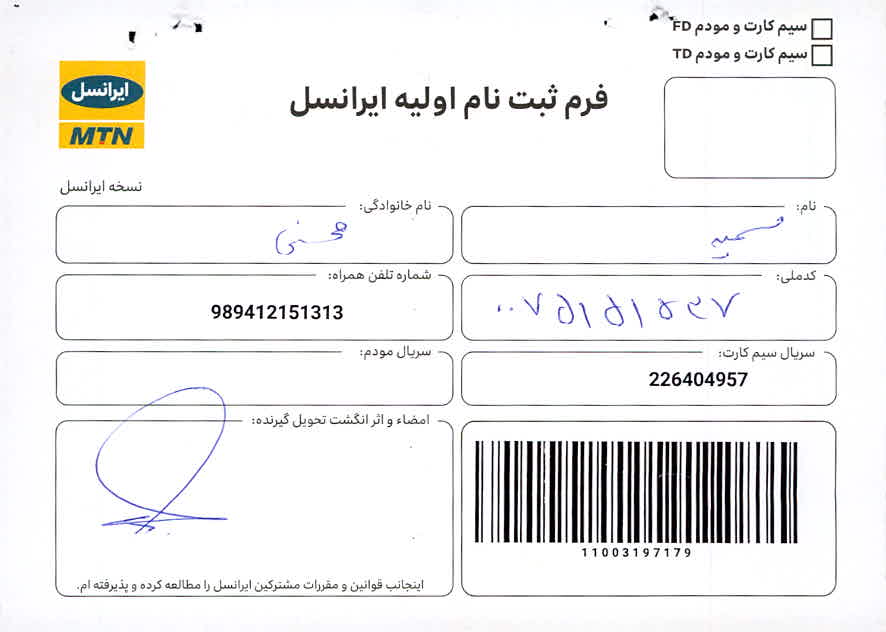 سیم کارت و مودم FD
سیم کارت و مودم TD
ایرانسل
MTN
فرم ثبت نام اولیه ایرانسل
نسخه ایرانسل
نام:
سمیه
نام خانوادگی:
محسنی
کدملی:
شماره تلفن همراه:
989412151313
سریال سیم کارت:
226404957
سریال مودم:
امضاء و اثر انگشت تحویل گیرنده:
11003197179
اینجانب قوانین و مقررات مشترکین ایرانسل را مطالعه کرده و پذیرفته ام.